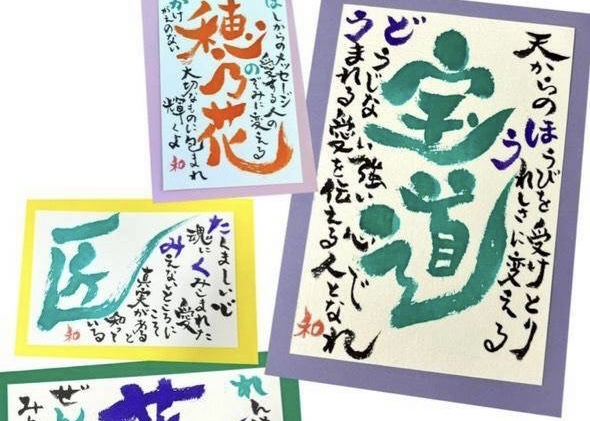 ほしからのメッセージ
愛する人の
のぞみに変える
穂乃花
かけ
がえのない
大切なものに包まれ
輝くよ
和
天からのほうびを受けとり
うれしさに変える
宝道
どうじない強い心で
うまれる愛を伝える人となれ
和
匠
たくましい心
魂にくみこまれた
愛
みえないところに
こそ
真実がある
と
知って
いる
和
れん
花
ぜん
み